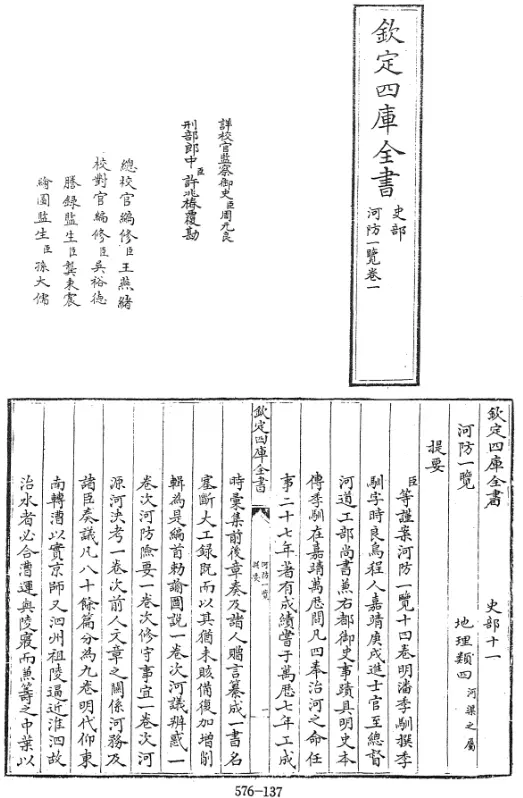 欽定四庫全書
史部
河防一覽卷一
詳校官監察御史臣周元良
刑部郎中臣許兆椿覆勘
總校官編修臣王燕緒
校對官編修臣吳裕德
謄錄監生臣龔東震
繪圖監生臣孫大儒
欽定四庫全書
史部十一
河防一覽
地理類四
河渠之屬
提要
臣等謹案河防一覽十四卷明潘季馴撰季
馴字時良烏程人嘉靖庚戌進士官至總督
河道工部尚書兼右都御史事蹟具明史本
傳季馴在嘉靖萬歴間凡四奉治河之命任
事二十七年著有成績嘗于萬歴七年工成
欽定四庫全書
河防一覽
提要
一
時彚集前後章奏及諸人贈言纂成一書名
塞斷大工錄既而以其猶未賅備復加增削
輯為是編首勅諭圖說一卷次河議辨惑一
卷次河防險要一卷次修守事宜一卷次河
源河決考一卷次前人文章之關係河務及
諸臣奏議凡八十餘篇分為九卷明代仰東
南轉漕以實京師又泗州祖陵逼近淮泗故
治水者必合漕運與陵寢而兼籌之中葉以
576-137